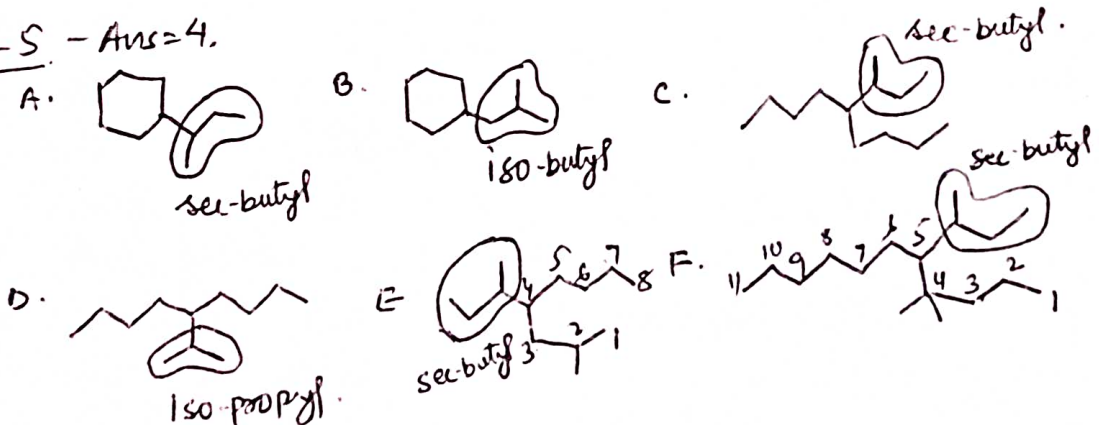 -5 - Ans=4.
A.
sec-butyl
B.
iso-butyl
C.
sec-butyl.
D.
Iso-propyl.
E
sec-butyl
1
2
3
4
5
6
7
8
F.
sec-butyl
11
10
9
8
7
6
5
4
3
2
1